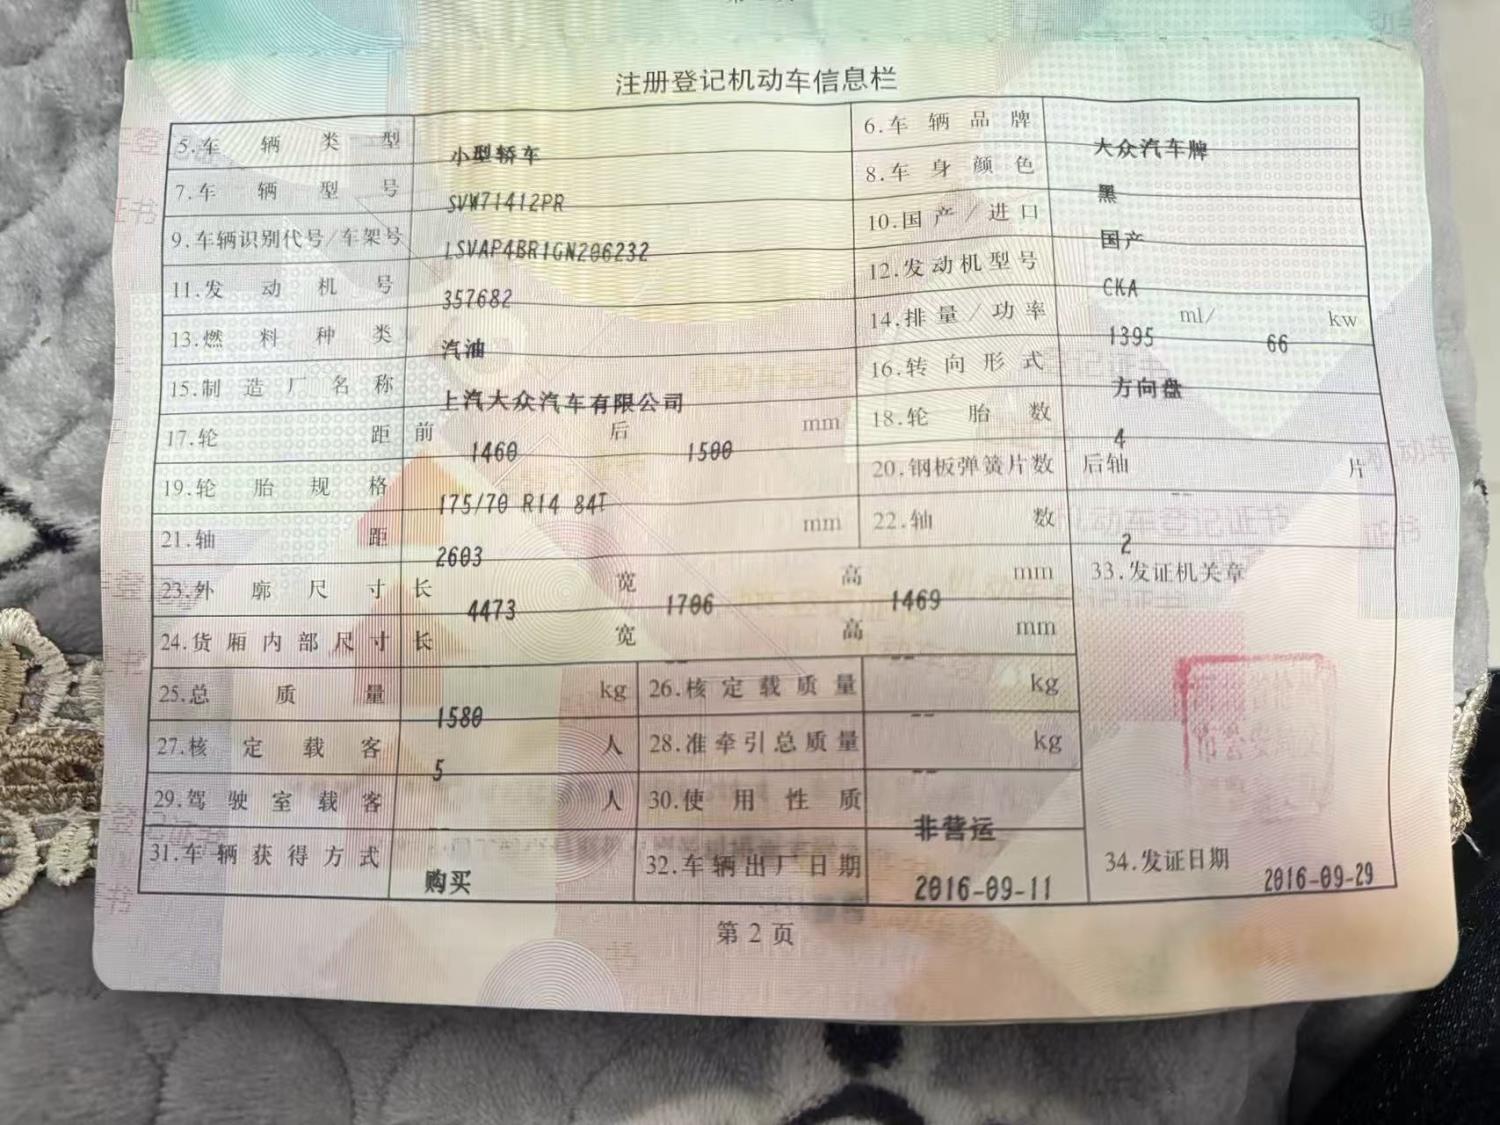 注册登记机动车信息栏
5.车辆类型 小型轿车 6.车辆品牌 大众汽车牌
7.车辆型号 SVW71412PR 8.车身颜色 黑
9.车辆识别代号/车架号 LSVAP4BR1GN206232 10.国产/进口 国产
11.发动机号 357682 12.发动机型号 CKA
13.燃料种类 汽油 14.排量/功率 1395 ml/ 66 kw
15.制造厂名称 上汽大众汽车有限公司 16.转向形式 方向盘
17.轮距 前 1460 后 1500 mm 18.轮胎数 4
19.轮胎规格 175/70 R14 84T 20.钢板弹簧片数 后轴 -- 片
21.轴距 2603 mm 22.轴数 2
23.外廓尺寸 长 4473 宽 1706 高 1469 mm 33.发证机关章
24.货厢内部尺寸 长 宽 -- 高 -- mm
25.总质量 1580 kg 26.核定载质量 -- kg
27.核定载客 5 人 28.准牵引总质量 -- kg
29.驾驶室载客 -- 人 30.使用性质 非营运
31.车辆获得方式 购买 32.车辆出厂日期 2016-09-11 34.发证日期 2016-09-29
第2页